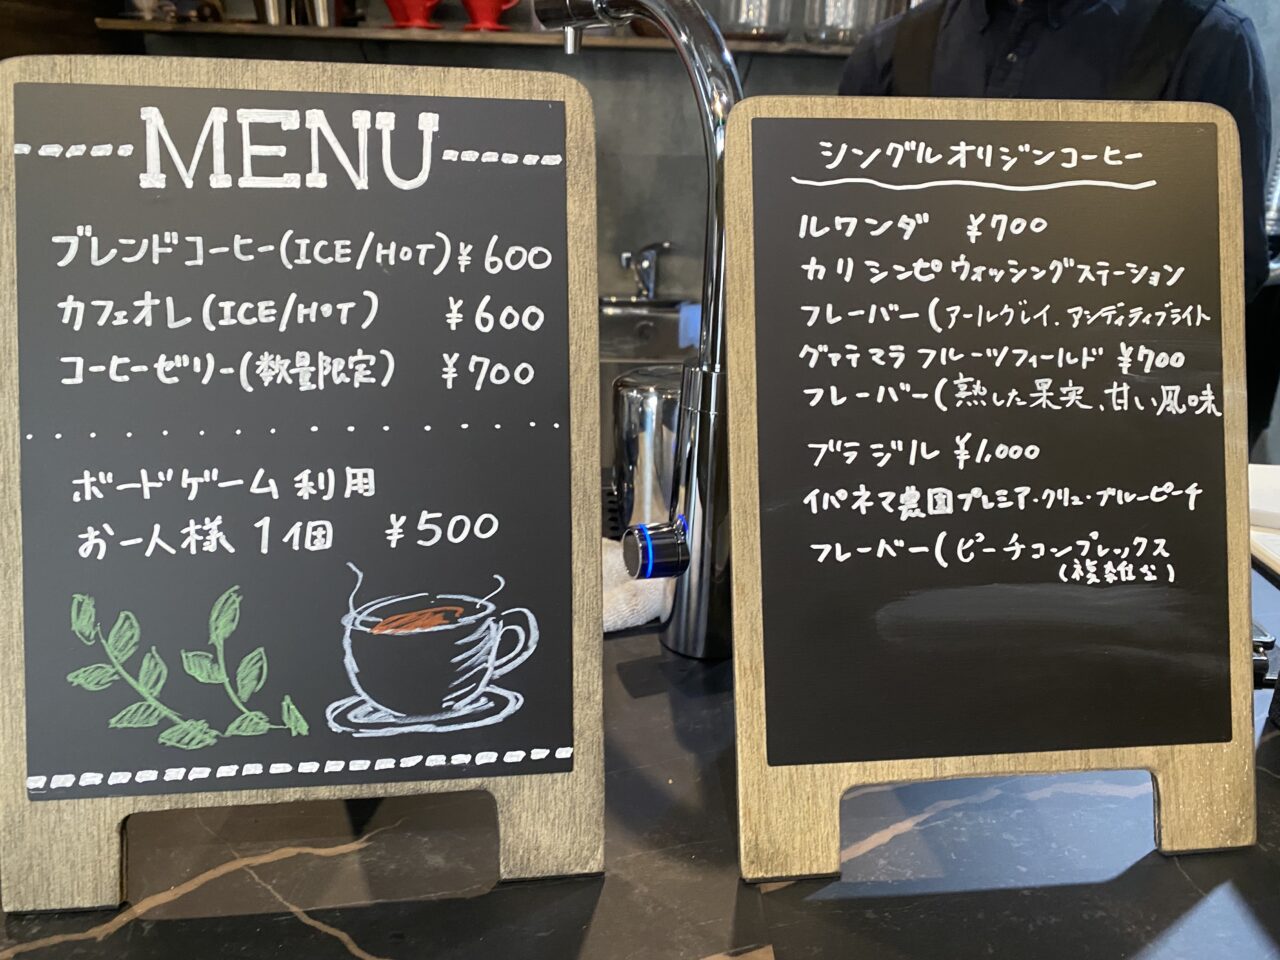 MENU
ブレンドコーヒー(ICE/HOT) ¥600
カフェオレ(ICE/HOT) ¥600
コーヒーゼリー(数量限定) ¥700
ボードゲーム利用
お一人様1個 ¥500
シングルオリジンコーヒー
ルワンダ ¥700
カリシンビウォッシングステーション
フレーバー(アールグレイ.アシディティブライト
グァテマラフルーツフィールド ¥700
フレーバー(熟した果実、甘い風味
ブラジル ¥1,000
イパネマ農園プレミア・クリュ・ブルーピーチ
フレーバー(ピーチコンプレックス
(複雑さ)